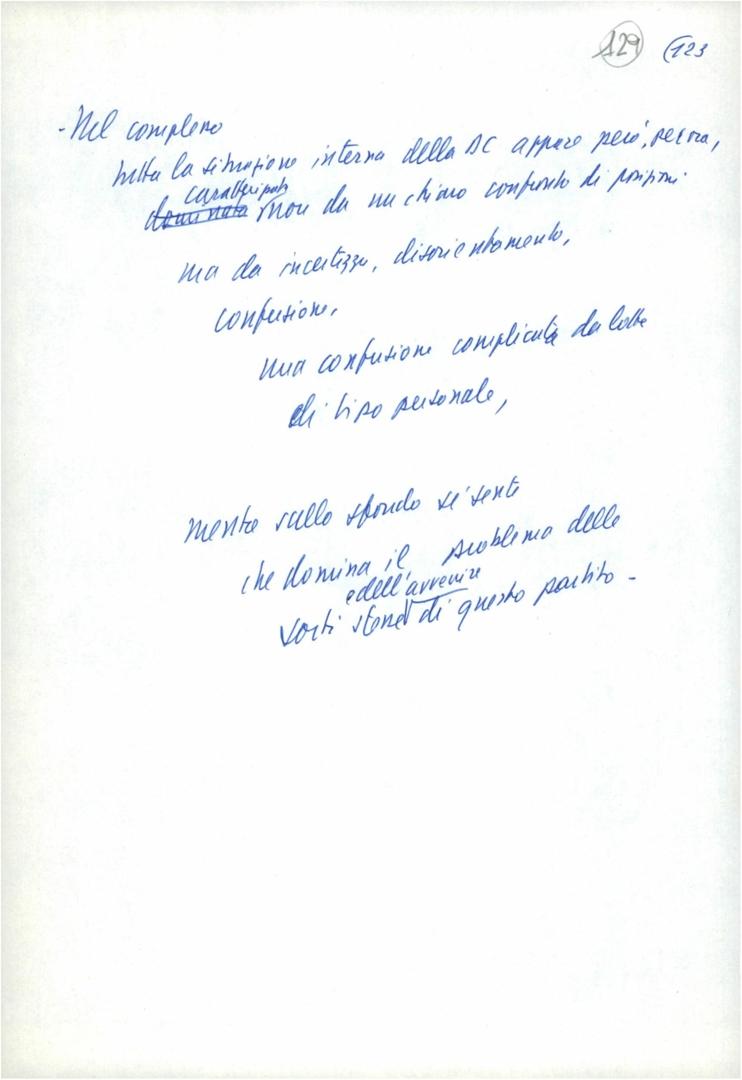 129 (123
- Nel complesso
tutta la situazione interna della DC appare però, per ora,
caratterizzata
dominata non da un chiaro confronto di posizioni
ma da incertezze, disorientamento,
confusione,
una confusione complicata da lotte
di tipo personale,
mentre sullo sfondo si sente
che domina il problema delle
e dell'avvenire
sorti stesse di questo partito -